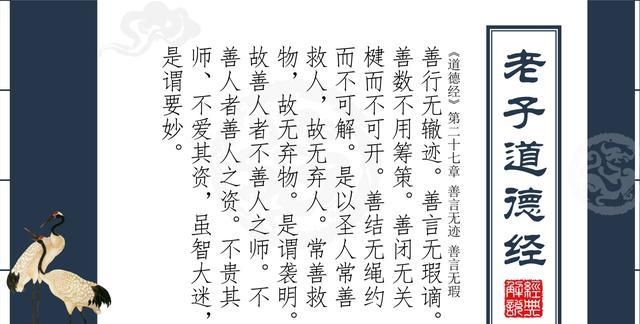 老子道德经
經典
解說
《道德经》第二十七章 善言无迹 善言无瑕
善行无辙迹。善言无瑕谪。
善数不用筹策。善闭无关
楗而不可开。善结无绳约
而不可解。是以圣人常善
救人，故无弃人。常善救
物，故无弃物。是谓袭明。
故善人者不善人之师。不
善人者善人之资。不贵其
师、不爱其资，虽智大迷，
是谓要妙。